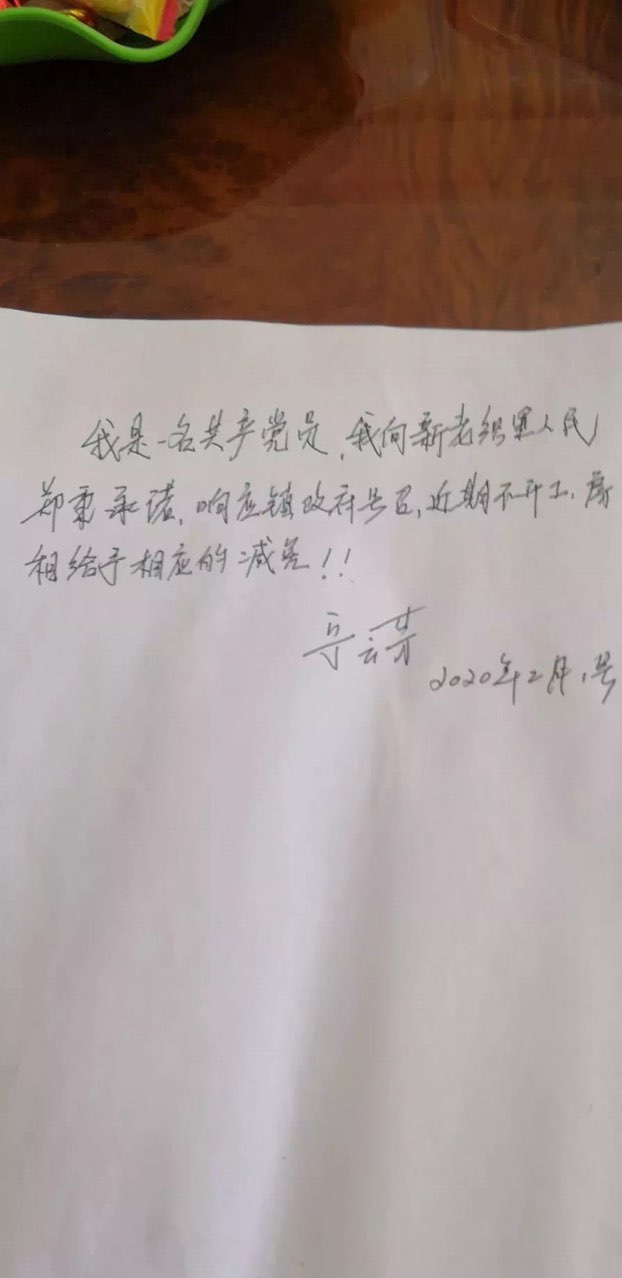 我是一名共产党员,我向新老织里人民
郑重承诺,响应镇政府号召,近期不开工,房
租给予相应的减免!!
2020年2月1号